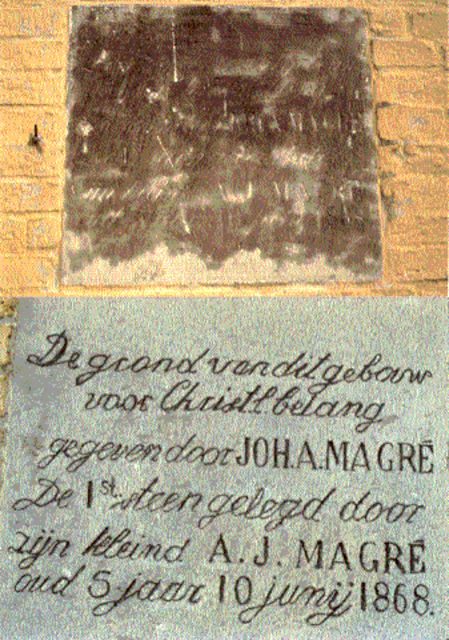 De grond van dit gebouw
voor Christl belang
gegeven door JOH.A.MAGRÉ
De 1st. steen gelegd door
zijn kleind A.J. MAGRÉ
oud 5 jaar 10 junij 1868.